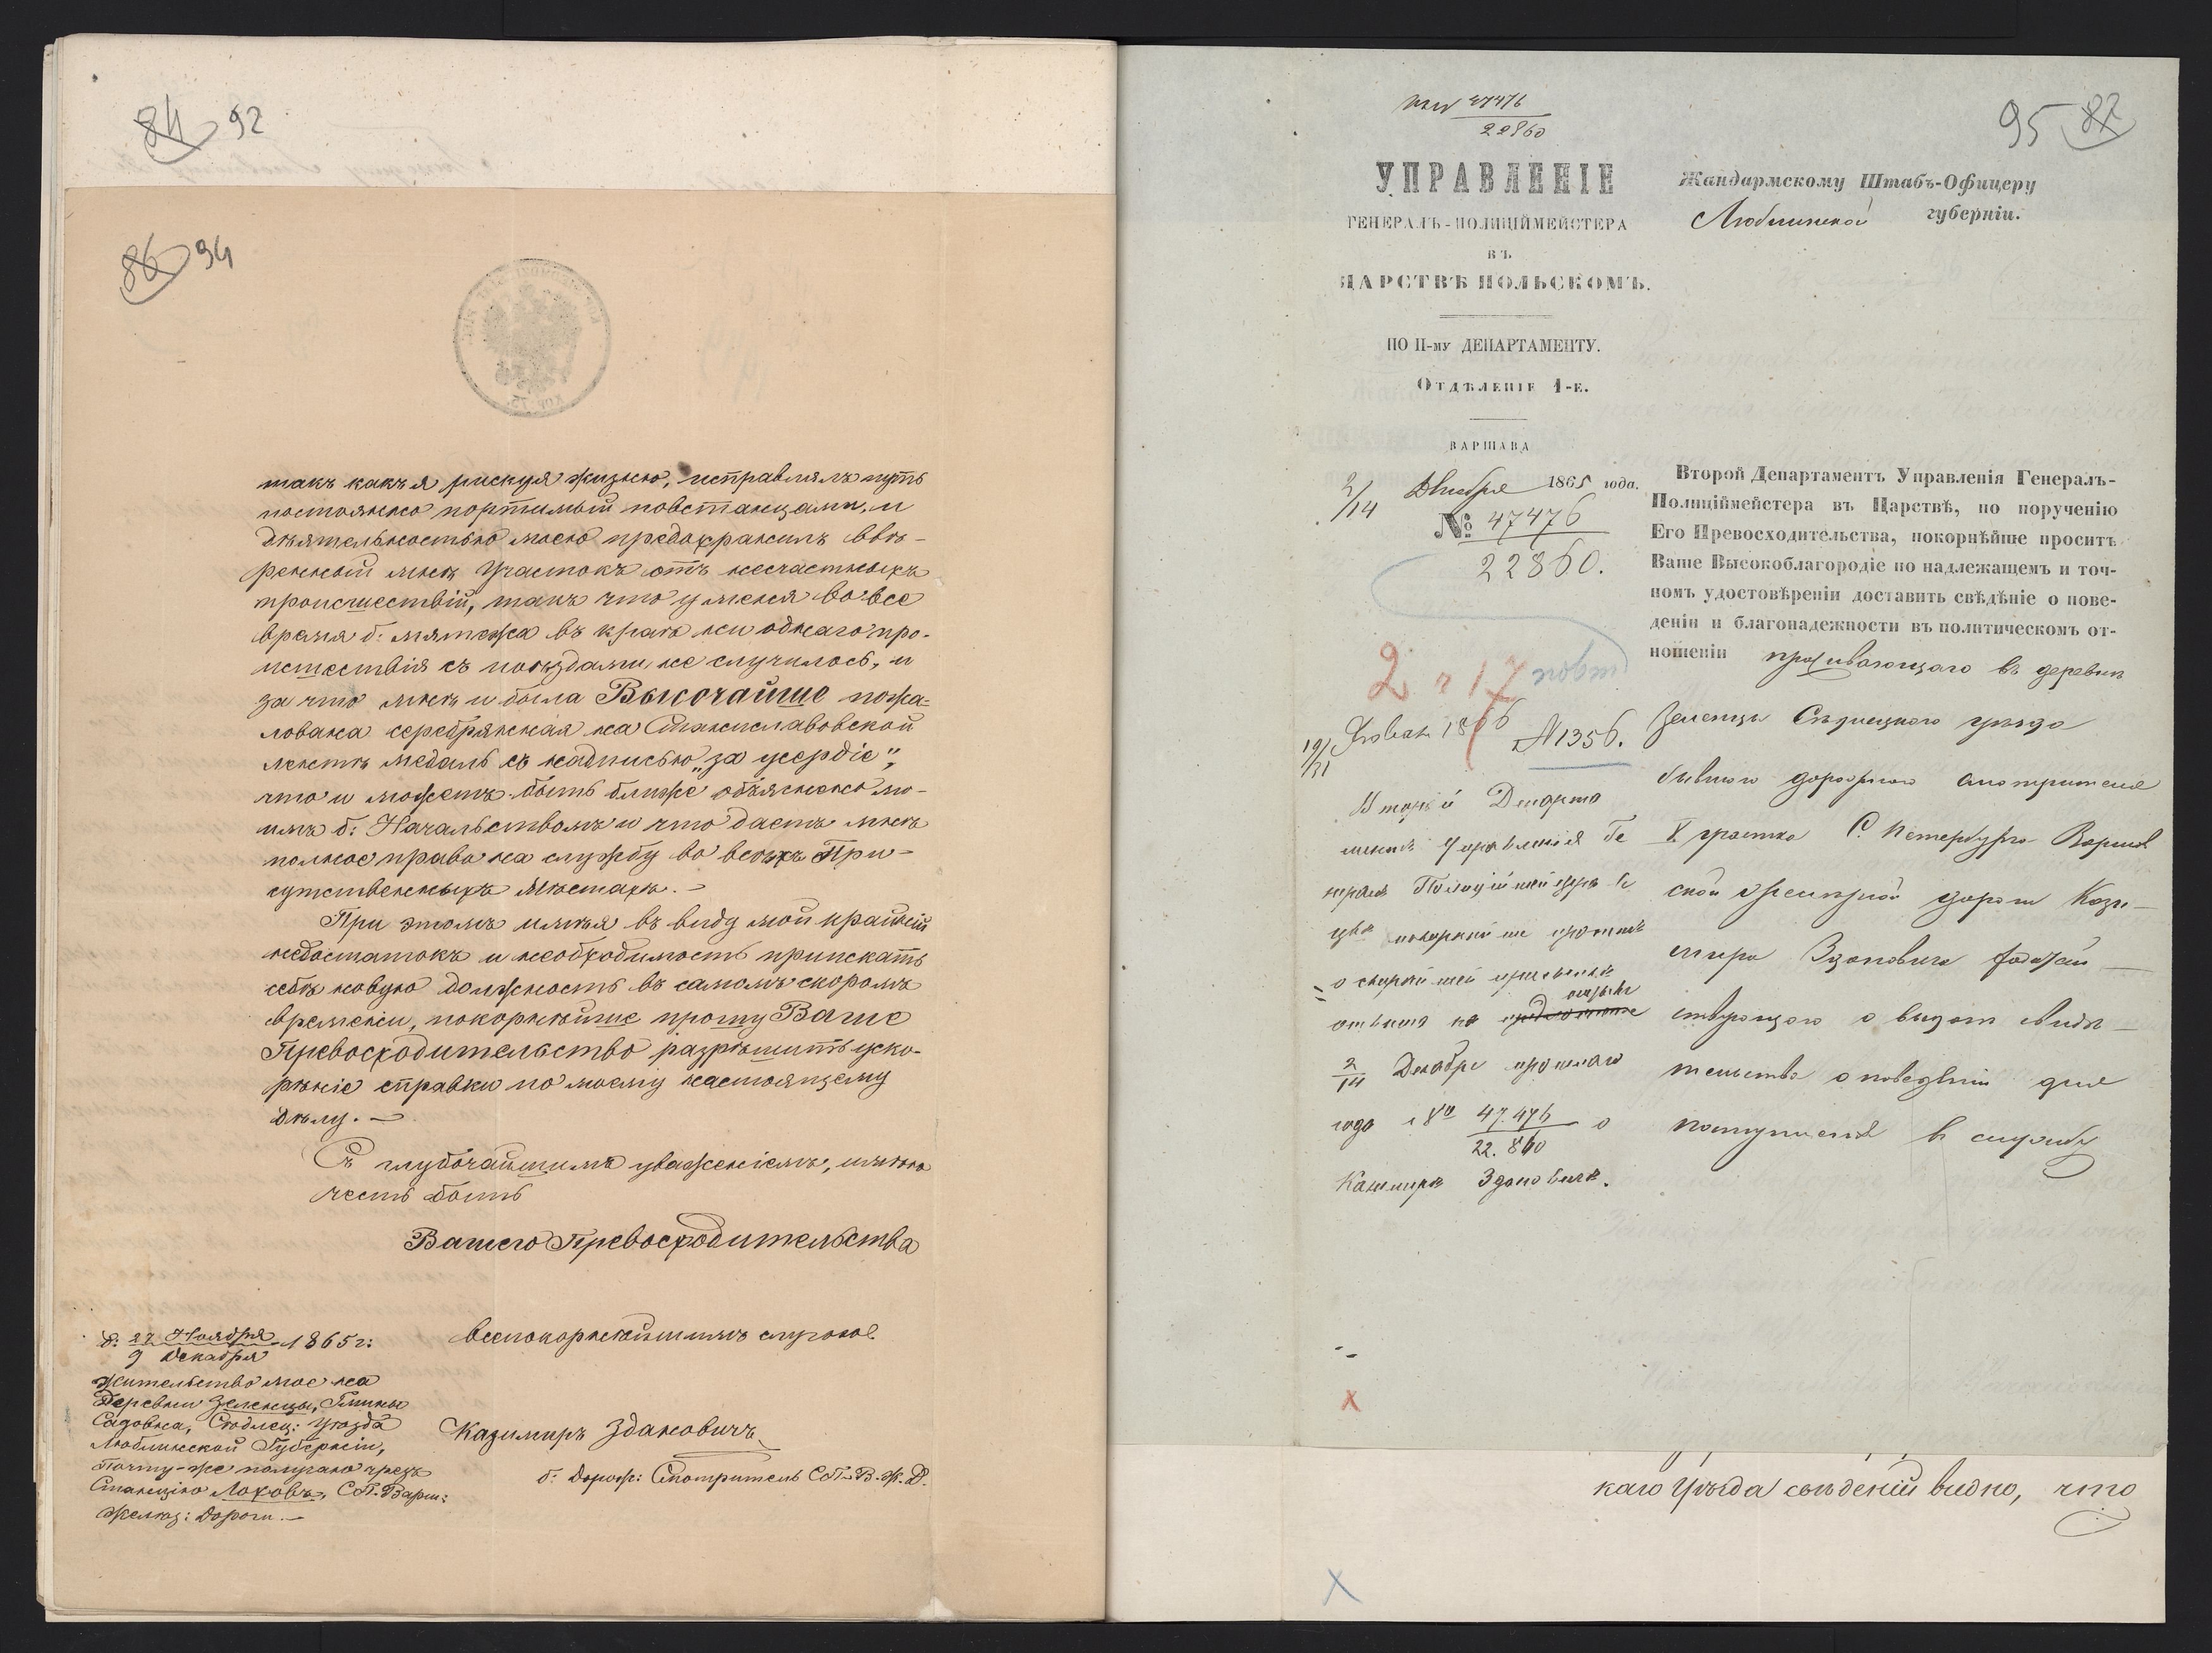 84 92
86 94
такъ какъ я рискуя жизнею, исправлялъ путь
постоянно портимый повстанцами, и
дѣятельностью моею предохранилъ ввѣ-
ренный мнѣ Участокъ отъ несчастныхъ
происшествій, такъ что у меня во все
время б: мятежа въ краѣ ни однаго про-
исшествія съ поѣздами не случилось, и
за что мнѣ и была Высочайше пожа-
лована серебрянная на Станиславовской
лентѣ медаль съ надписью „за усердіе",
что и можетъ быть ближе объяснено мо-
имъ б: Начальствомъ и что даетъ мнѣ
полное право на службу во всѣхъ При-
сутственныхъ Мѣстахъ. —
При этомъ имѣя въ виду мой крайній
недостатокъ и необходимость прискать
себѣ новую должность въ самомъ скоромъ
времени, покорнѣйше прошу Ваше
Превосходительство разрѣшить уско-
рѣніе справки по моему настоящему
дѣлу. —
Съ глубочайшимъ уваженіемъ, имѣю
честь быть
Вашего Превосходительства
всепокорнѣйшимъ слугою
Казимиръ Здановичъ
б: Дорож: Смотритель С.П.-В.Ж.Д.
д: 27 Ноября 1865 г:
9 Декабря
Жительство мое на
Деревни Зеленцы, Гмины
Садовна, Сѣдлец: Уѣзда
Люблинской Губерніи,
Почту-же получаю чрезъ
Станцію Лоховъ, С.П. Варш:
Желѣз: Дороги. —
47476
22860
95 87
УПРАВЛЕНІЕ
ГЕНЕРАЛЪ-ПОЛИЦІЙМЕЙСТЕРА
ВЪ
ЦАРСТВѢ ПОЛЬСКОМЪ.
ПО II-МУ ДЕПАРТАМЕНТУ.
ОТДѢЛЕНІЕ 1-Е.
ВАРШАВА
2/14 Декабря 1865 года.
№ 47476
22860.
Жандармскому Штабъ-Офицеру
Люблинской губерніи.
Второй Департаментъ Управленія Генералъ-
Полиціймейстера въ Царствѣ, по порученію
Его Превосходительства, покорнѣйше проситъ
Ваше Высокоблагородіе по надлежащемъ и точ-
номъ удостовѣреніи доставить свѣдѣніе о пове-
деніи и благонадежности въ политическомъ от-
ношеніи проживающаго въ деревни
Зеленцы Сѣдлецкаго уѣзда
бывшаго дорожнаго смотрителя
X участка С. Петербурго Варшав
ской желѣзной дороги Кази-
мира Здановича ходатай-
ствующаго о выдачѣ свидѣ-
тельства о поведеніи для
поступленія въ службу
19/31 Января 1866 № 1356.
Второй Департа
ментъ Управленія Ге
нералъ Полиціймейстера въ
Цвѣ покорнѣйше проситъ
о скорѣйшей присылкѣ
отвѣта на отзывъ
2/14 Декабря прошлаго
года за № 47.476 о
22.860
Казимирѣ Здановичѣ.
каго Уѣзда свѣденій видно, что